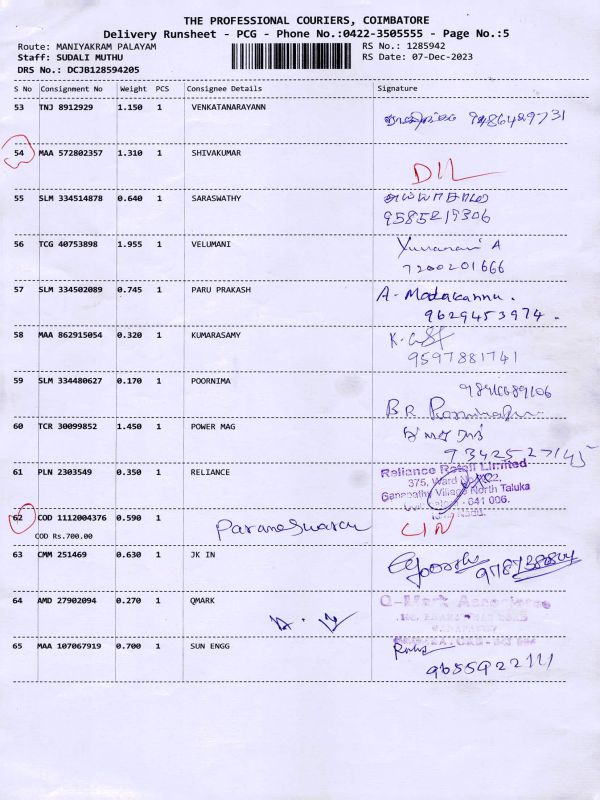 THE PROFESSIONAL COURIERS, COIMBATORE
Delivery Runsheet - PCG - Phone No.:0422-3505555 - Page No.:5
Route: MANIYAKRAM PALAYAM RS No.: 1285942
Staff: SUDALI MUTHU RS Date: 07-Dec-2023
DRS No.: DCJB128594205
S No Consignment No Weight PCS Consignee Details Signature
53 TNJ 8912929 1.150 1 VENKATANARAYANN
9486489731
54 MAA 572802357 1.310 1 SHIVAKUMAR
DIL
55 SLM 334514878 0.640 1 SARASWATHY
9585219306
56 TCG 40753898 1.955 1 VELUMANI
A
7200201666
57 SLM 334502089 0.745 1 PARU PRAKASH
A. Madakannu.
9629453974.
58 MAA 862915054 0.320 1 KUMARASAMY
9597881741
59 SLM 334480627 0.170 1 POORNIMA
BR
60 TCR 30099852 1.450 1 POWER MAG
9342527145
61 PLN 2303549 0.350 1 RELIANCE
Reliance Retail Limited
375, Ward
Ganapathy Village North Taluka
641 006.
62 COD 1112004376 0.590 1
Parameswaran
CIN
COD Rs.700.00
63 CMM 251469 0.630 1 JK IN
64 AMD 27902094 0.270 1 QMARK
Q-Mark Associates
65 MAA 107067919 0.700 1 SUN ENGG
9655922111